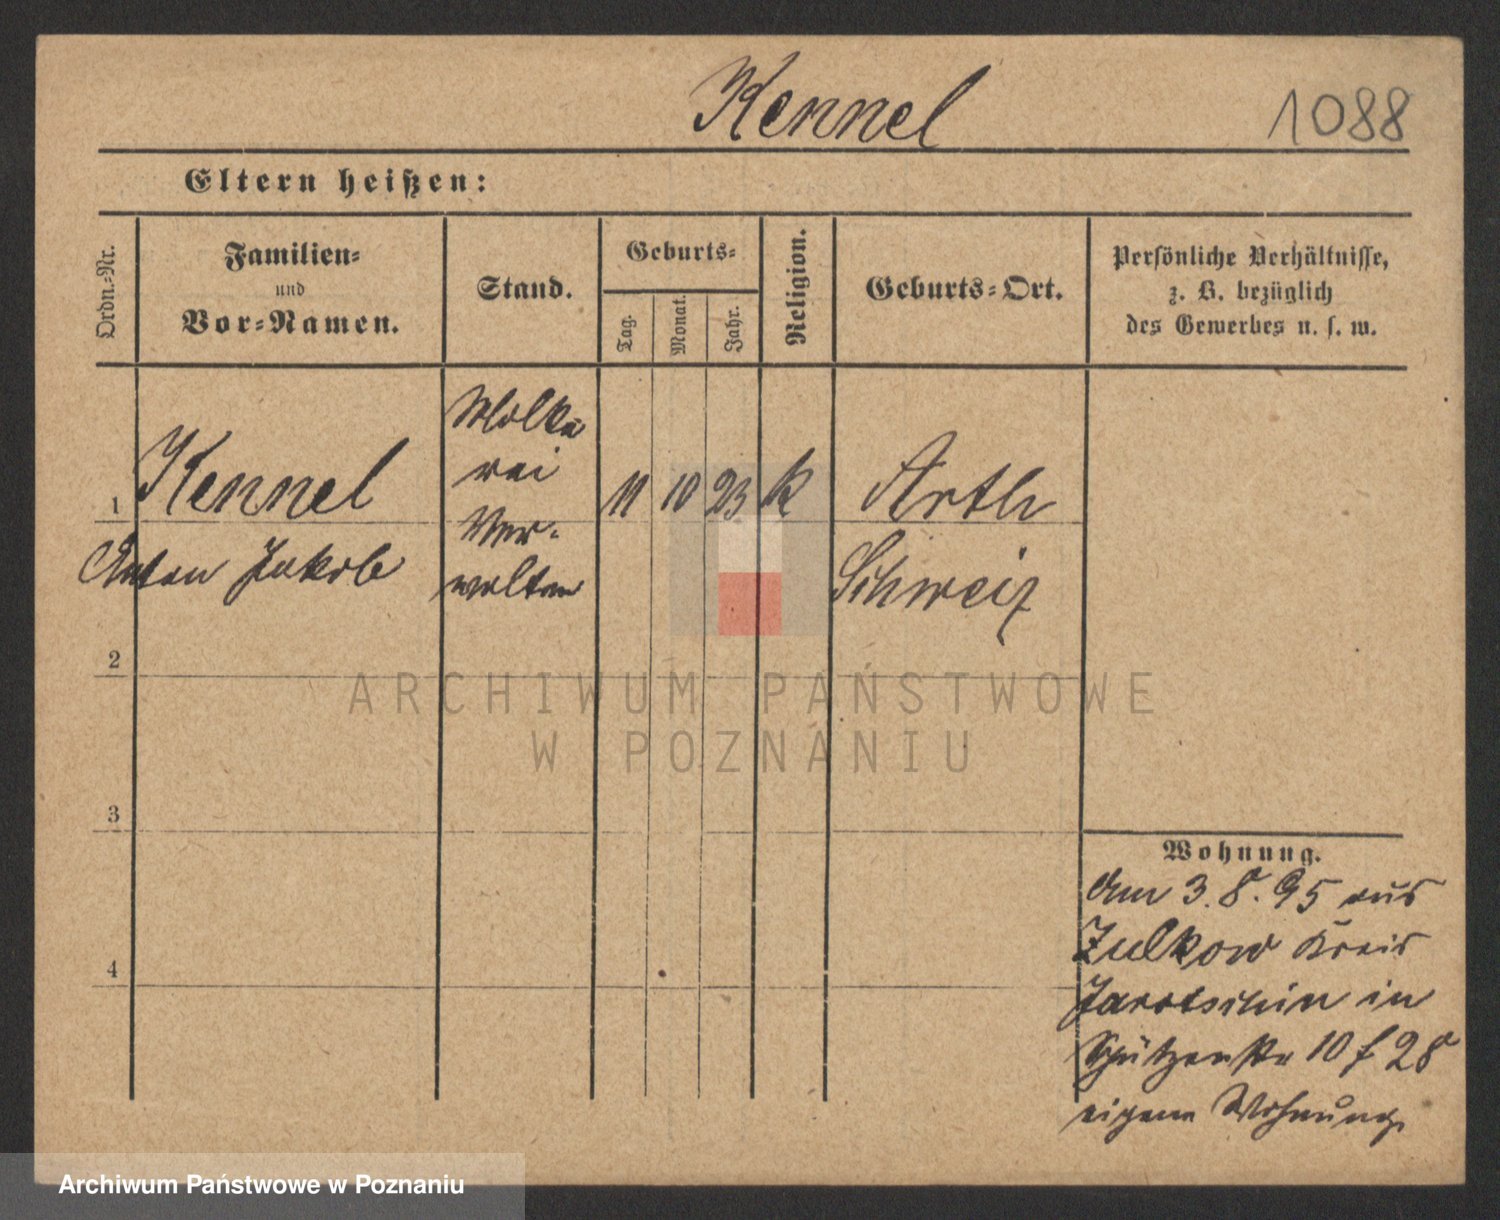 Kennel 1088
Eltern heißen:
Ordn.-Nr.
Familien-
und
Vor-Namen.
Stand.
Geburts-
Tag.
Monat.
Jahr.
Religion.
Geburts-Ort.
Persönliche Verhältnisse,
z. B. bezüglich
des Gewerbes u. s. w.
Molke
rei
Ver-
walter
1 Kennel 11 10 23 k Arth
Anton Jakob Schweiz
2
3
4
Wohnung.
Am 3.8.95 aus
Zulkow Kreis
Jarotschin in
Schützenstr 10 f 28
eigene Wohnung.
ARCHIWUM PAŃSTWOWE
W POZNANIU
Archiwum Państwowe w Poznaniu